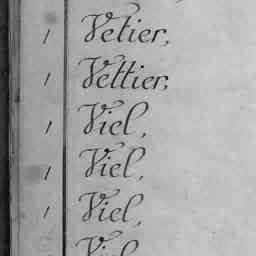 1 Vetier,
1 Vettier,
1 Viel,
1 Viel,
1 Viel,
Viel